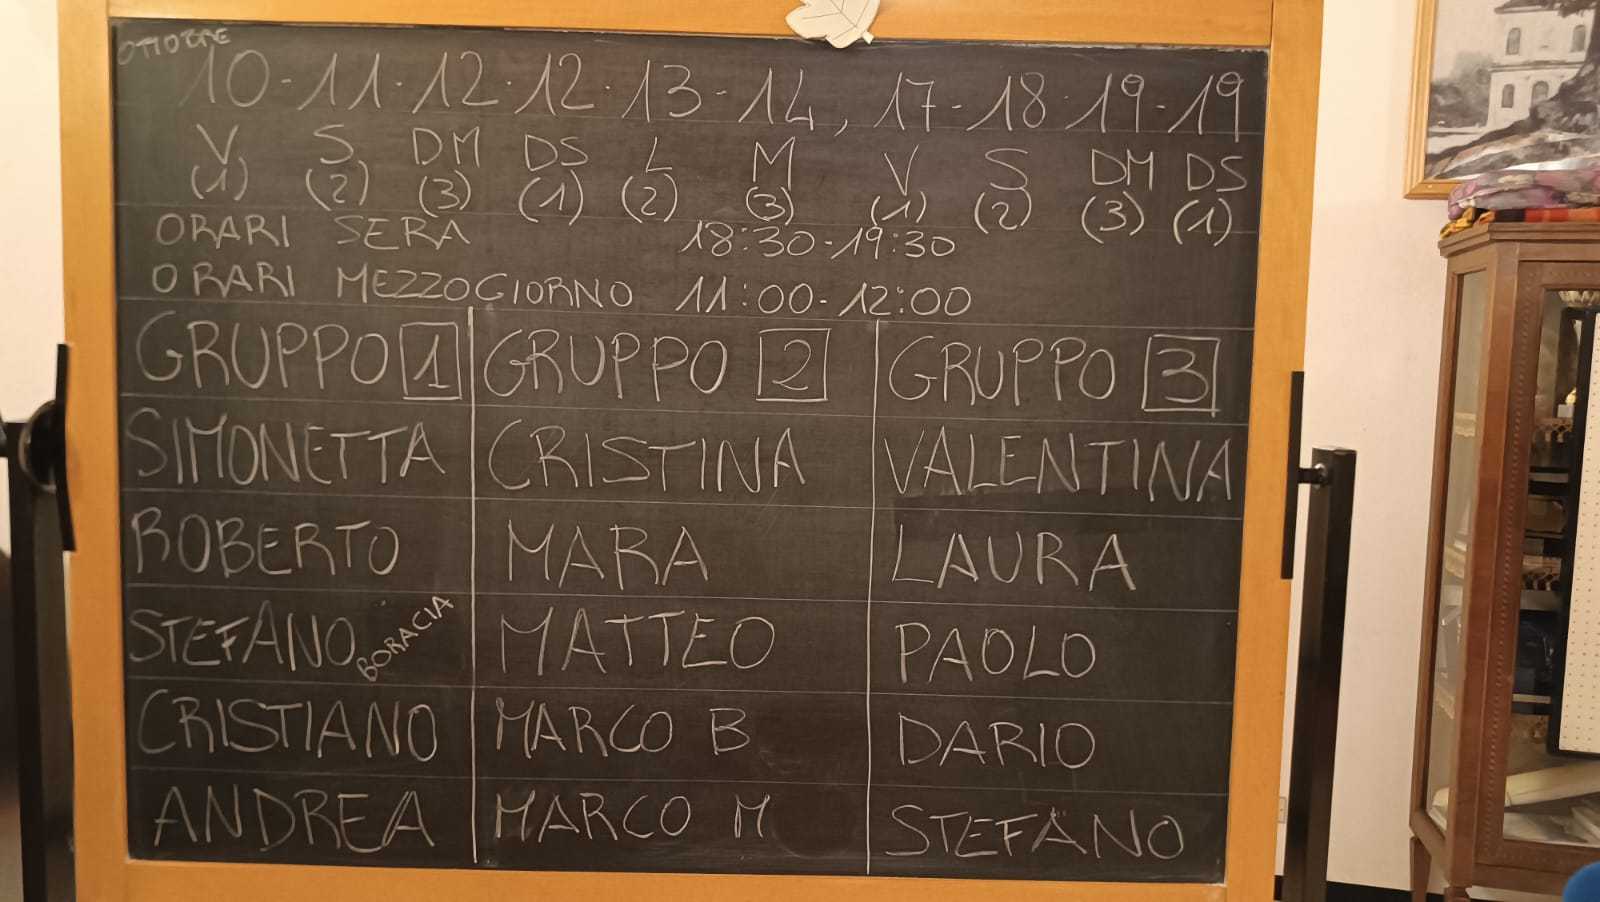 OTTOBRE
10-11-12-12-13-14, 17-18-19-19
V S DM DS L M V S DM DS
(1) (2) (3) (1) (2) (3) (1) (2) (3) (1)
ORARI SERA 18:30-19:30
ORARI MEZZOGIORNO 11:00-12:00
GRUPPO 1 GRUPPO 2 GRUPPO 3
SIMONETTA CRISTINA VALENTINA
ROBERTO MARA LAURA
STEFANO BORACIA MATTEO PAOLO
CRISTIANO MARCO B DARIO
ANDREA MARCO M STEFANO